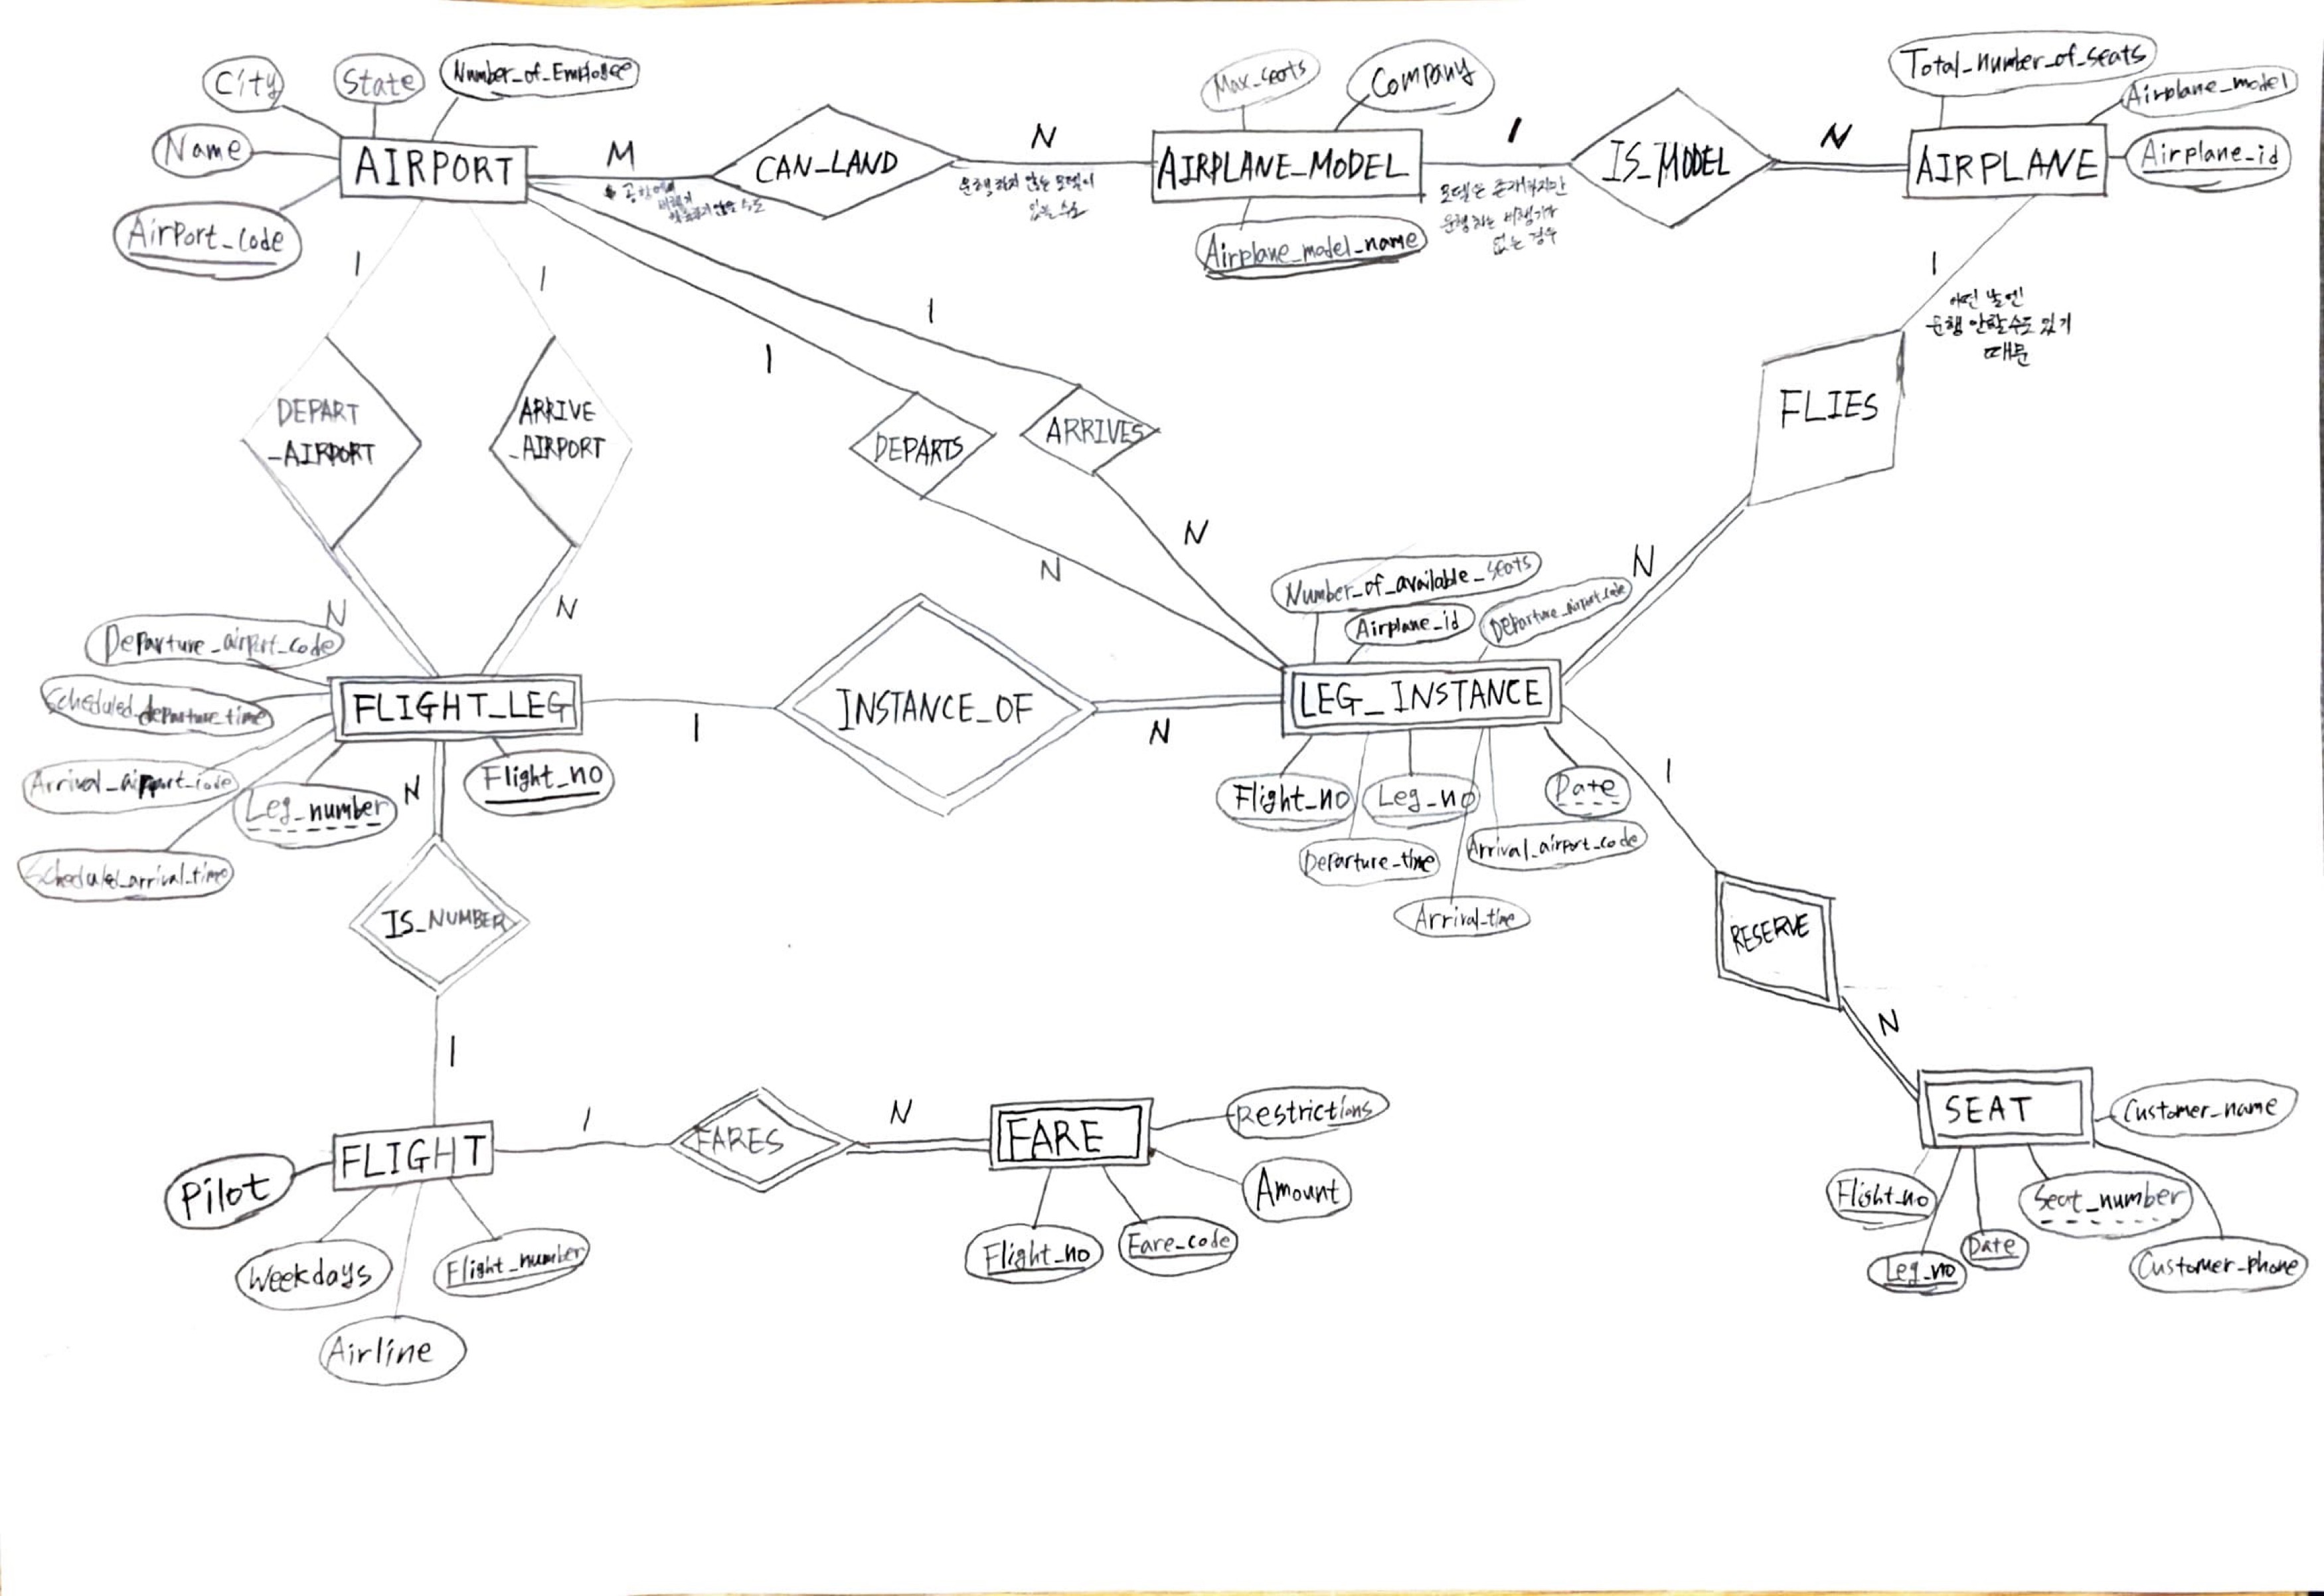 City
State
Number_of_Employee
Name
AIRPORT
Airport_code
M
CAN_LAND
N
공항에
비행기
착륙하지 않을 수도
운행하지 않는 모델이
있을 수도
Max_seats
Company
AIRPLANE_MODEL
Airplane_model_name
1
IS_MODEL
N
모델은 존재하지만
운행하는 비행기가
없는 경우
Total_number_of_seats
Airplane_model
AIRPLANE
Airplane_id
1
1
1
1
1
어떤 날엔
운행 안할 수도 있기
때문
DEPART
_AIRPORT
ARRIVE
_AIRPORT
DEPARTS
ARRIVES
FLIES
N
N
N
N
N
Departure_airport_code
Scheduled_departure_time
Arrival_airport_code
Scheduled_arrival_time
FLIGHT_LEG
Leg_number
N
Flight_no
1
INSTANCE_OF
N
Number_of_available_seats
Airplane_id
Departure_airport_code
LEG_INSTANCE
Flight_no
Leg_no
Date
Departure_time
Arrival_airport_code
Arrival_time
1
IS_NUMBER
RESERVE
1
N
FLIGHT
Pilot
Weekdays
Flight_number
Airline
1
FARES
N
FARE
Restrictions
Amount
Flight_no
Fare_code
SEAT
Customer_name
Flight_no
Seat_number
Leg_no
Date
Customer_phone